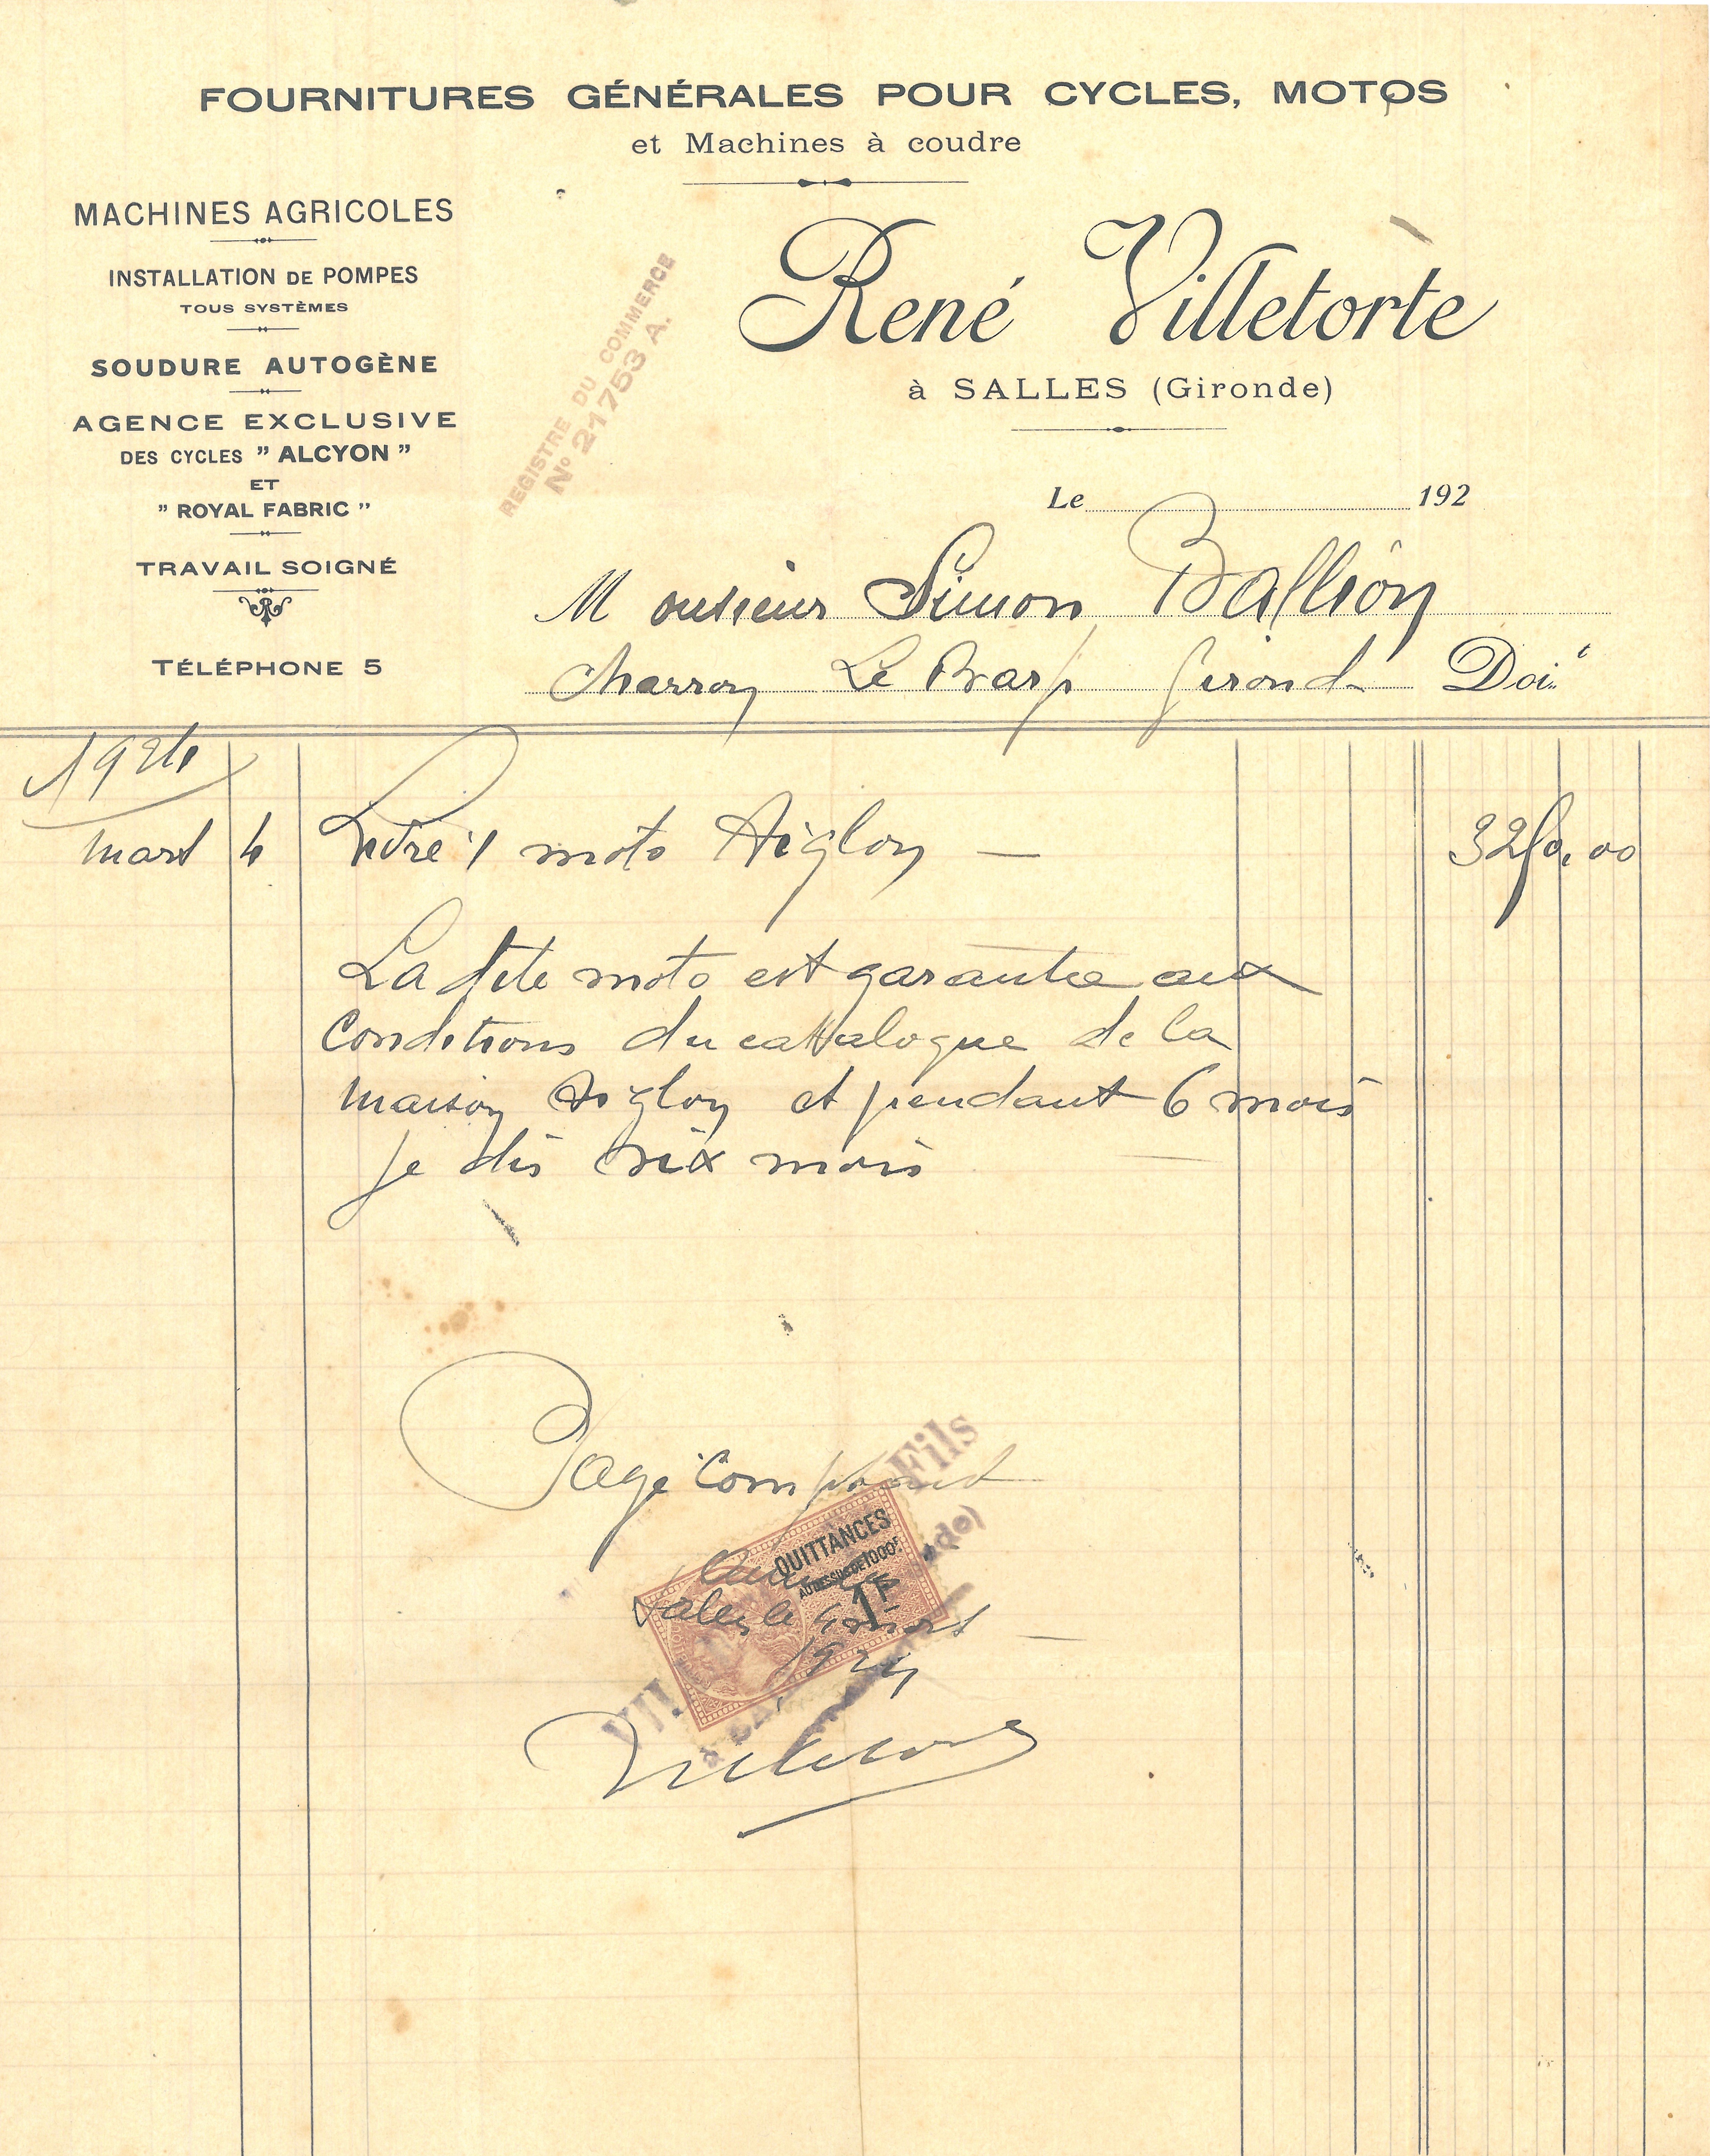 FOURNITURES GÉNÉRALES POUR CYCLES, MOTOS
et Machines à coudre
MACHINES AGRICOLES
INSTALLATION DE POMPES
TOUS SYSTÈMES
SOUDURE AUTOGÈNE
AGENCE EXCLUSIVE
DES CYCLES " ALCYON "
ET
" ROYAL FABRIC "
TRAVAIL SOIGNÉ
TÉLÉPHONE 5
REGISTRE DU COMMERCE
No 21753 A.
René Villetorte
à SALLES (Gironde)
Le 192
Monsieur Simon Ballion
Charron Le Barp Gironde Doit
1924
mars 4 Livré 1 moto Aiglon — 3250,00
La dite moto est garantie aux
Conditions du catalogue de la
maison Aiglon et pendant 6 mois
je dis six mois
Payé Comptant
Fils
QUITTANCES
AU DESSUS DE 1000F
1F
Salles le 4 mars
1924
Villetorte